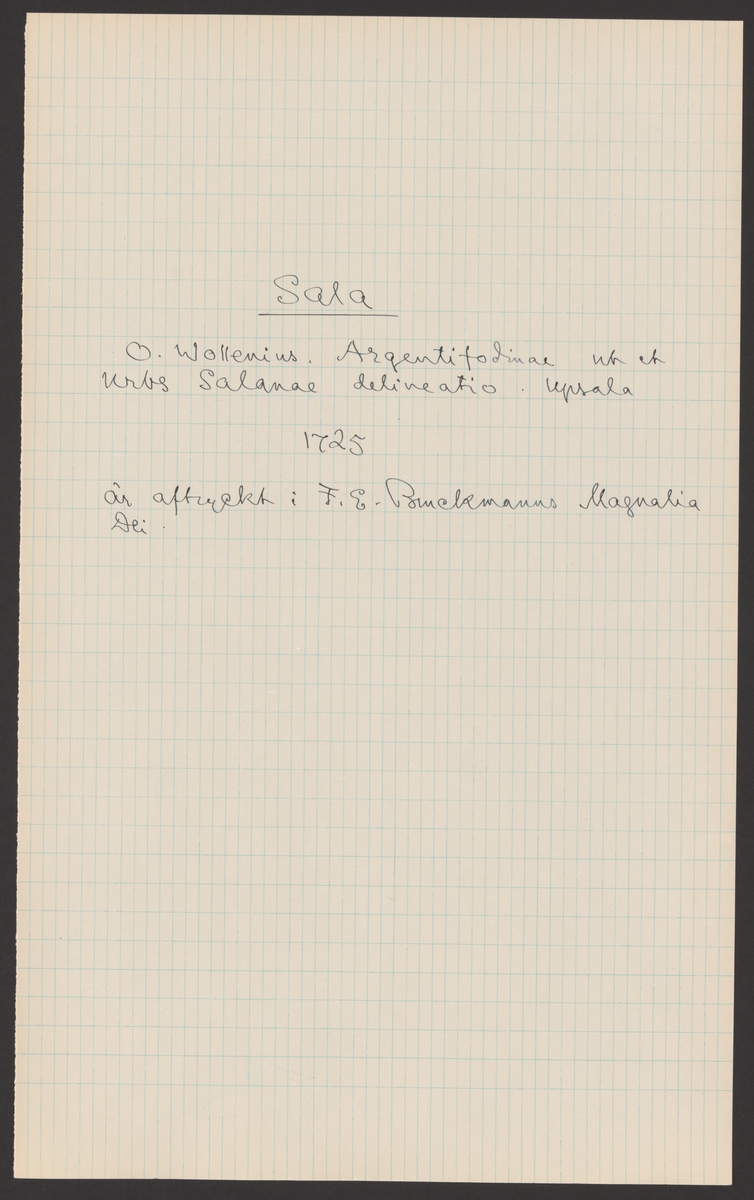 Sala
O. Wollenius. Argentifodinae ut et
Urbs Salanae delineatio. Upsala
1725
är aftryckt i F. E. Bruckmanns Magnalia
Dei.